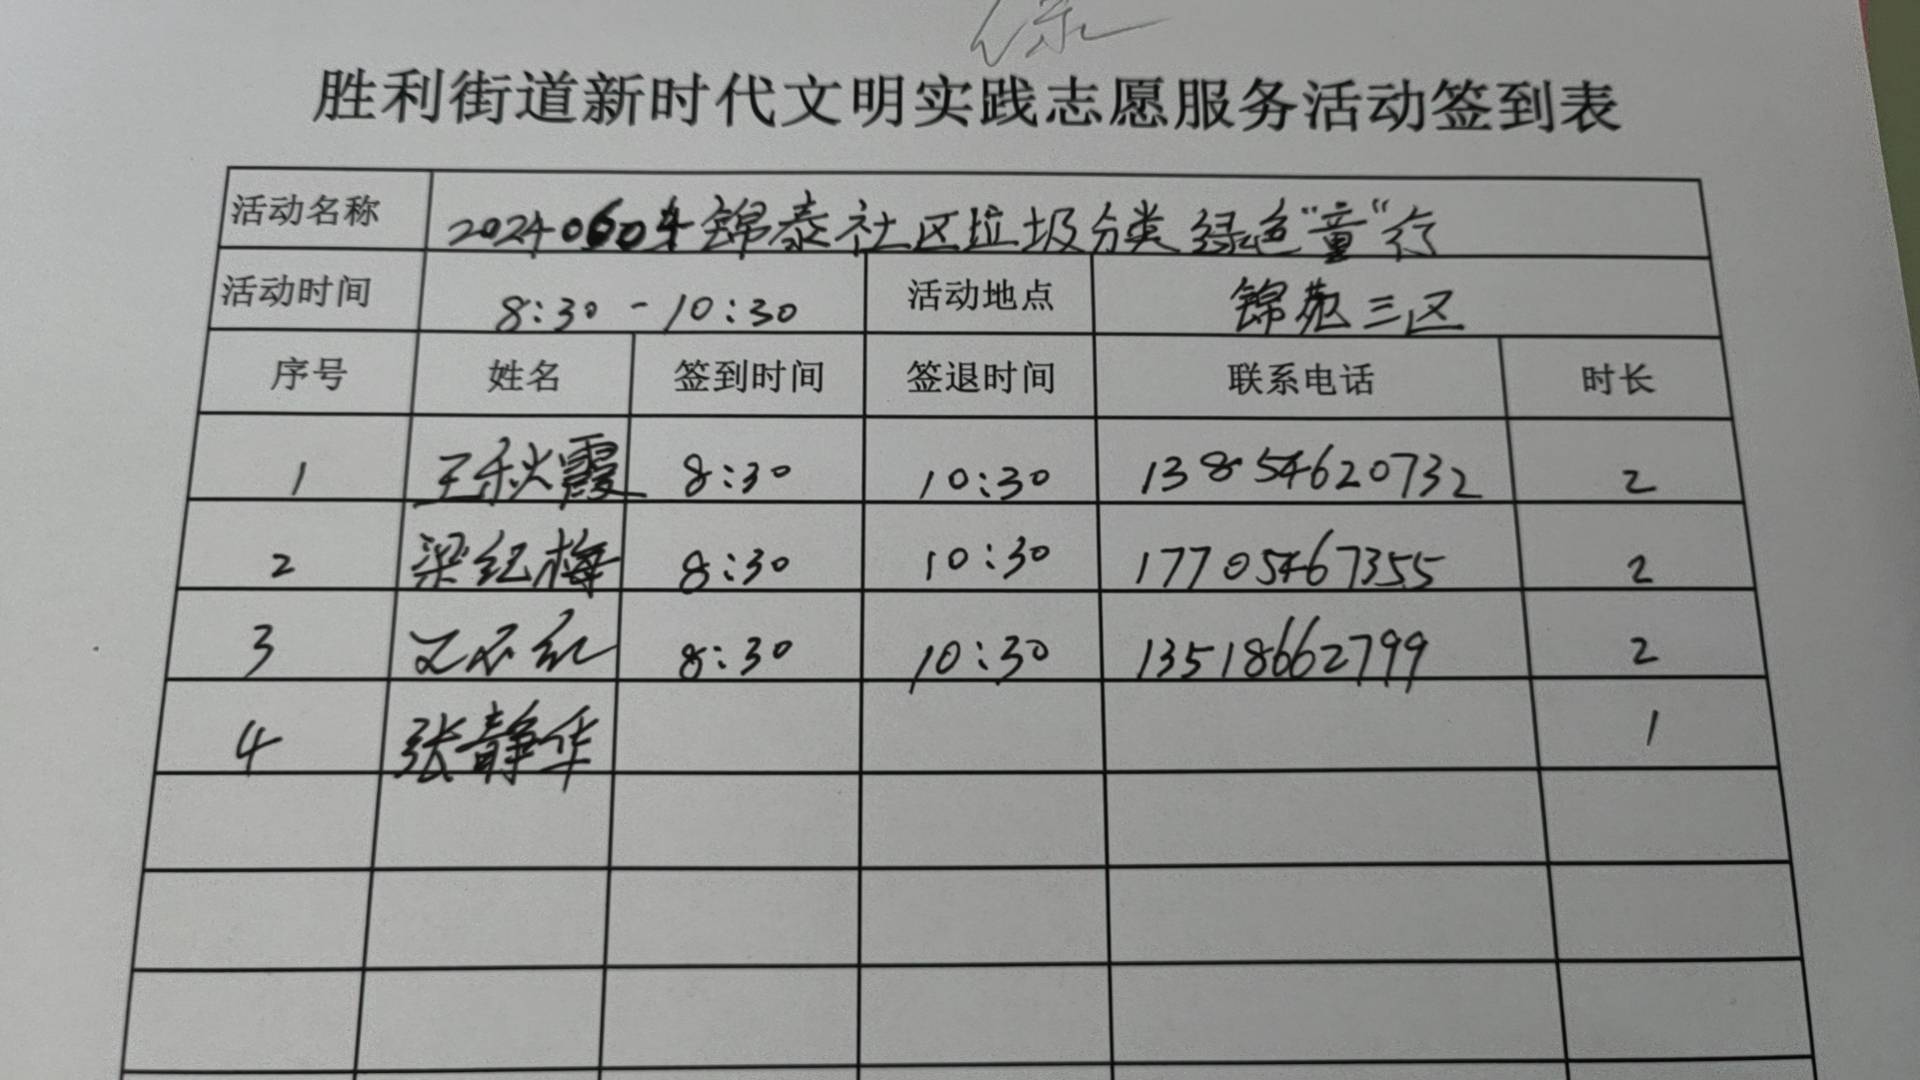 胜利街道新时代文明实践志愿服务活动签到表
活动名称 20240604锦泰社区垃圾分类绿色“童”行
活动时间 8:30-10:30 活动地点 锦苑三区
序号 姓名 签到时间 签退时间 联系电话 时长
1 王秋霞 8:30 10:30 13854620732 2
2 梁红梅 8:30 10:30 17705467355 2
3 8:30 10:30 13518662799 2
4 张静华 1